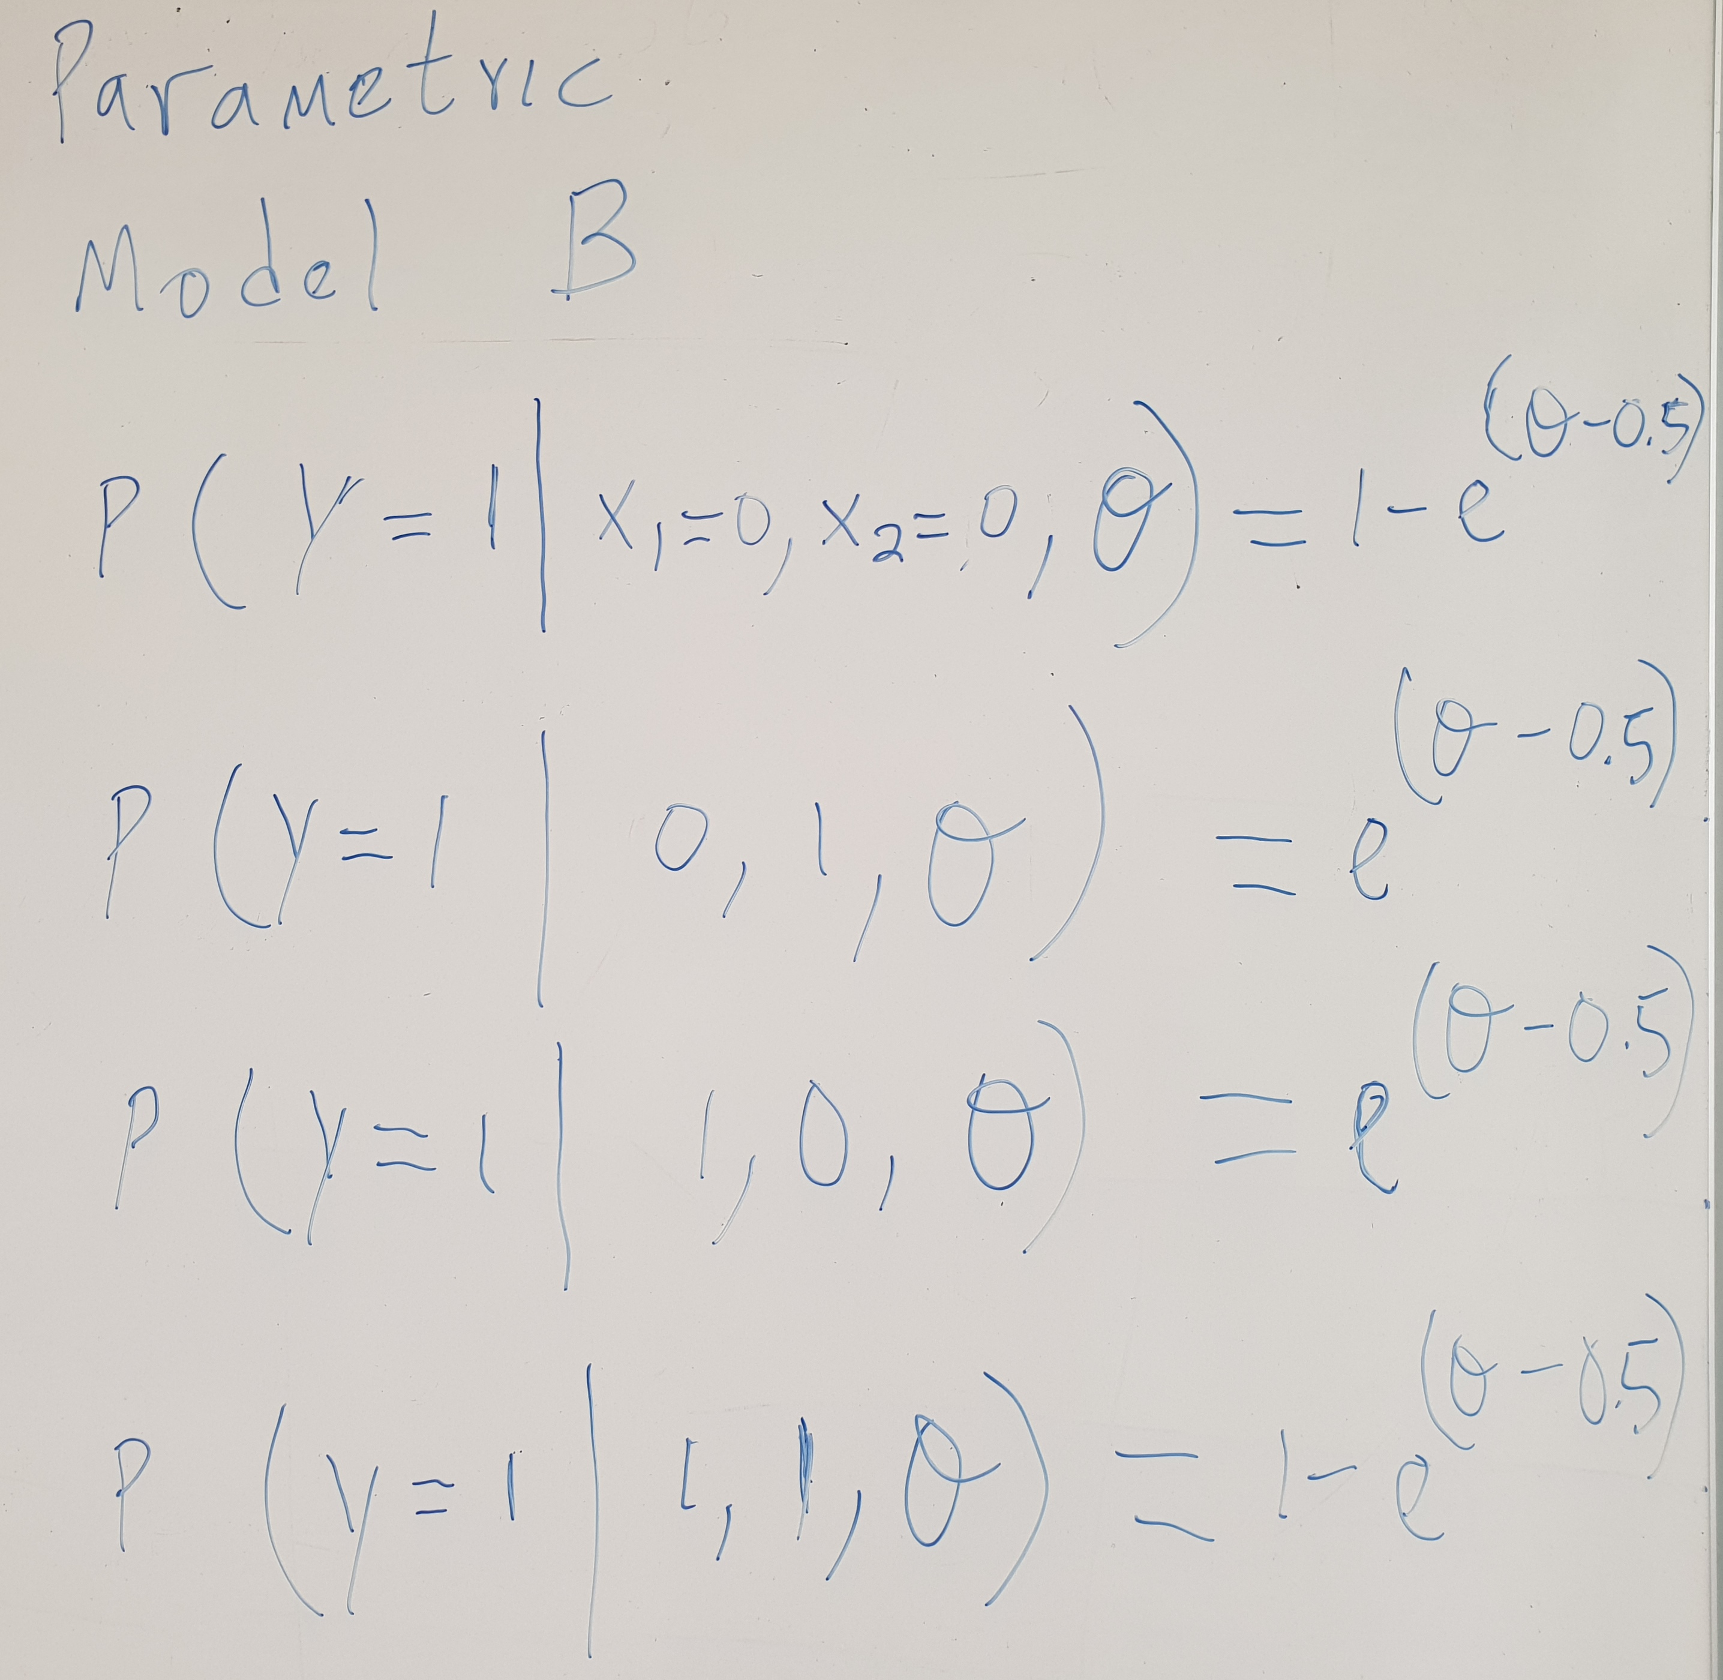 Parametric
Model B
P(Y=1|x₁=0,x₂=0,θ)=1-e^(θ-0.5)
P(Y=1|0,1,θ)=e^(θ-0.5)
P(Y=1|1,0,θ)=e^(θ-0.5)
P(Y=1|1,1,θ)=1-e^(θ-0.5)